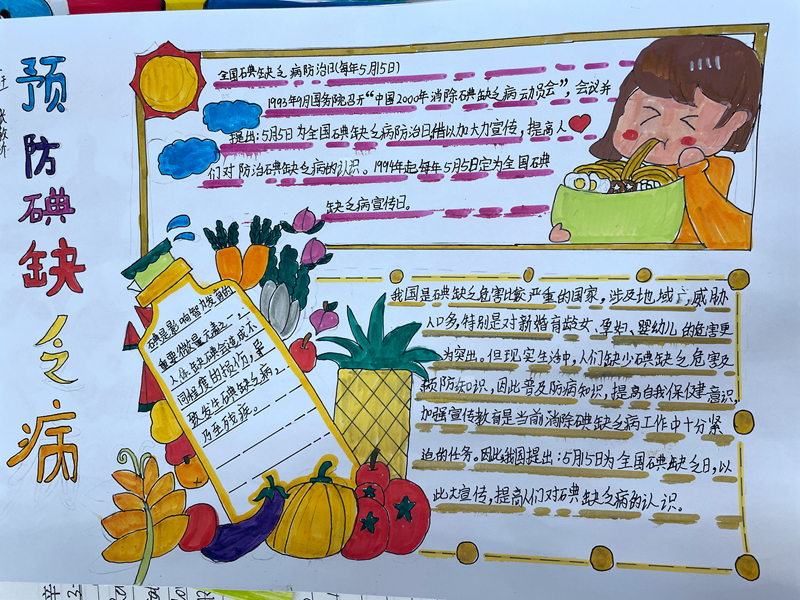 预防碘缺乏病
全国碘缺乏病防治日(每年5月15日)
1993年9月国务院召开“中国2000年消除碘缺乏病动员会”，会议并
提出：5月5日为全国碘缺乏病防治日借以加大力宣传，提高人
们对防治碘缺乏病的认识。1994年起每年5月5日定为全国碘
缺乏病宣传日。
碘是影响智力发育的
重要微量元素…
人体缺碘会造成不
同程度的损伤，导
致发生碘缺乏病，
乃至残疾。
我国是碘缺乏危害比较严重的国家，涉及地域广，威胁
人口多，特别是对新婚育龄女、孕妇、婴幼儿的危害更
为突出。但现实生活中，人们缺少碘缺乏危害及
预防知识，因此普及防病知识，提高自我保健意识，
加强宣传教育是当前消除碘缺乏病工作中十分紧
迫的任务。因此我国提出：5月15日为全国碘缺乏日，以
此大宣传，提高人们对碘缺乏病的认识。